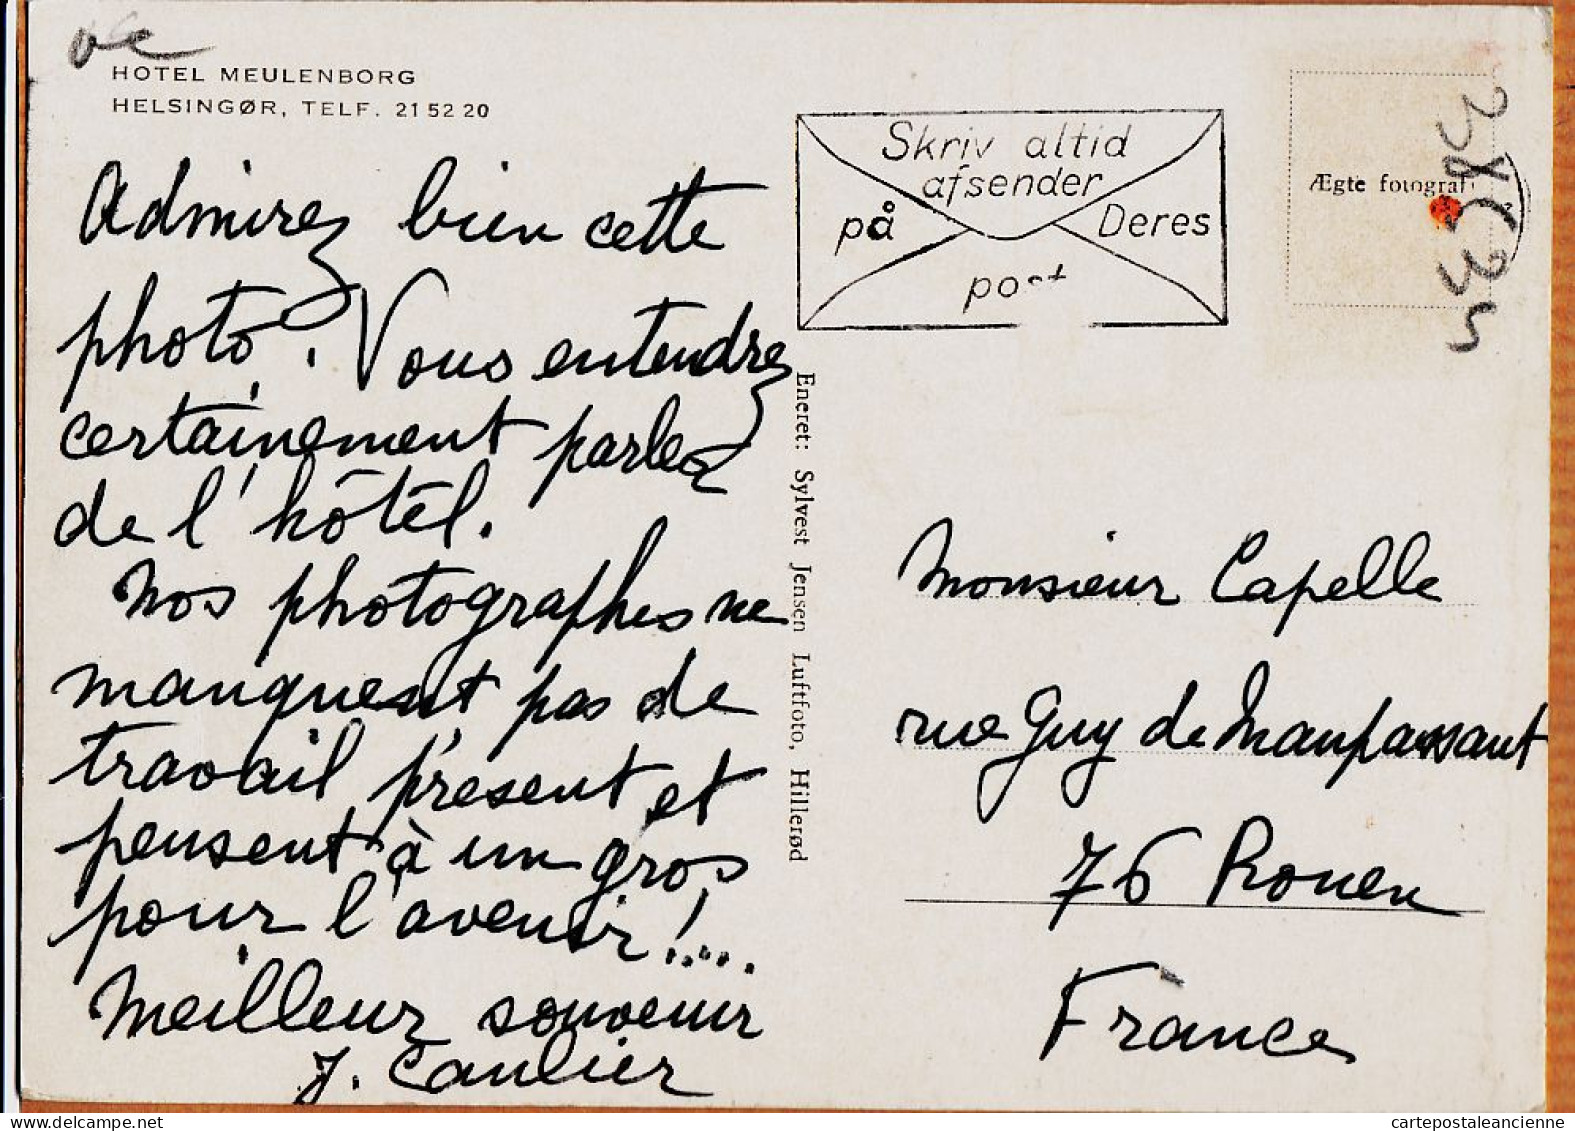 HOTEL MEULENBORG
HELSINGØR, TELF. 21 52 20
Admirez bien cette
photo. Vous entendrez
certainement parler
de l'hôtel.
Nos photographes ne
manquent pas de
travail présent et
pensent à un gros
pour l'avenir!....
Meilleur souvenir
J. Caulier
Skriv altid
afsender
på Deres
post
Ægte fotografi
Eneret: Sylvest Jensen Luftfoto, Hillerød
Monsieur Capelle
rue Guy de Maupassant
76 Rouen
France
cartepostaleancienne